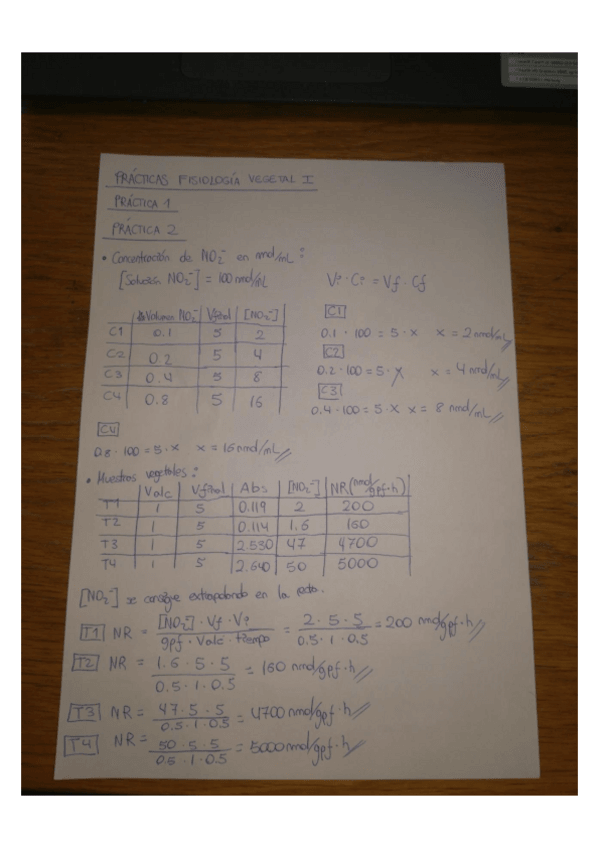 PRÁCTICAS FISIOLOGÍA VEGETAL I
PRÁCTICA 1
PRÁCTICA 2
• Concentración de NO₂⁻ en nmol/mL:
[Solución NO₂⁻] = 100 nmol/mL
Vi · Ci = Vf · Cf
Volumen NO₂⁻ Vfinal [NO₂⁻]
C1 0.1 5 2
C2 0.2 5 4
C3 0.4 5 8
C4 0.8 5 16
C1
0.1 · 100 = 5 · x x = 2 nmol/mL
C2
0.2 · 100 = 5 · x x = 4 nmol/mL
C3
0.4 · 100 = 5 · x x = 8 nmol/mL
C4
0.8 · 100 = 5 · x x = 16 nmol/mL
• Muestras vegetales:
Valc Vfinal Abs [NO₂⁻] NR (nmol/gpf·h)
T1 1 5 0.119 2 200
T2 1 5 0.114 1.6 160
T3 1 5 2.530 47 4700
T4 1 5 2.640 50 5000
[NO₂⁻] se consigue extrapolando en la recta.
T1 NR = [NO₂⁻] · Vf · Vi / gpf · Valc · tiempo = 2 · 5 · 5 / 0.5 · 1 · 0.5 = 200 nmol/gpf·h
T2 NR = 1.6 · 5 · 5 / 0.5 · 1 · 0.5 = 160 nmol/gpf·h
T3 NR = 47 · 5 · 5 / 0.5 · 1 · 0.5 = 4700 nmol/gpf·h
T4 NR = 50 · 5 · 5 / 0.5 · 1 · 0.5 = 5000 nmol/gpf·h